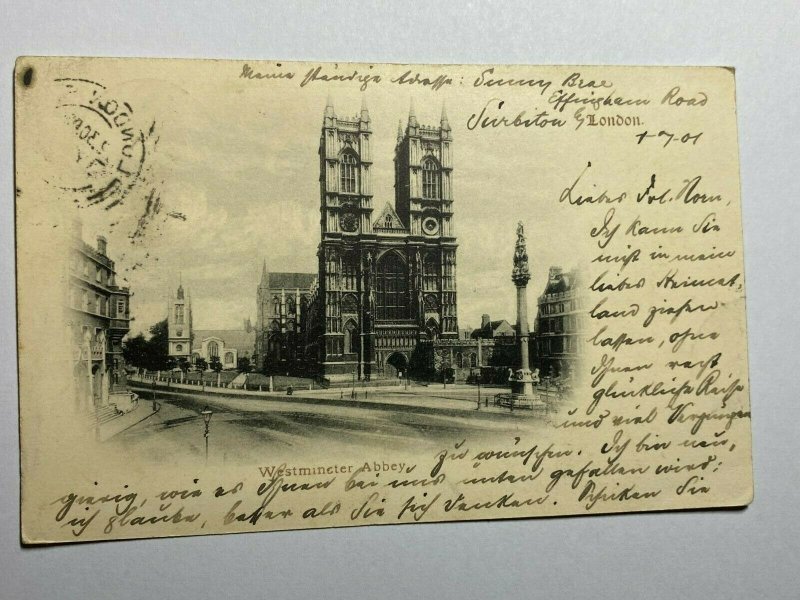 Meine ständige Adresse: Sunny Brae
Effingham Road
Surbiton
London.
1-7-01
LONDON
Liebes Frl. Horn,
Ich kann Sie
nicht in mein
liebes Heimat-
land ziehen
lassen, ohne
Ihnen recht
glückliche Reise
und viel Vergnügen
zu wünschen. Ich bin neu-
Westminster Abbey.
gierig, wie es Ihnen bei uns unten gefallen wird;
ich glaube, besser als Sie sich denken. Schicken Sie